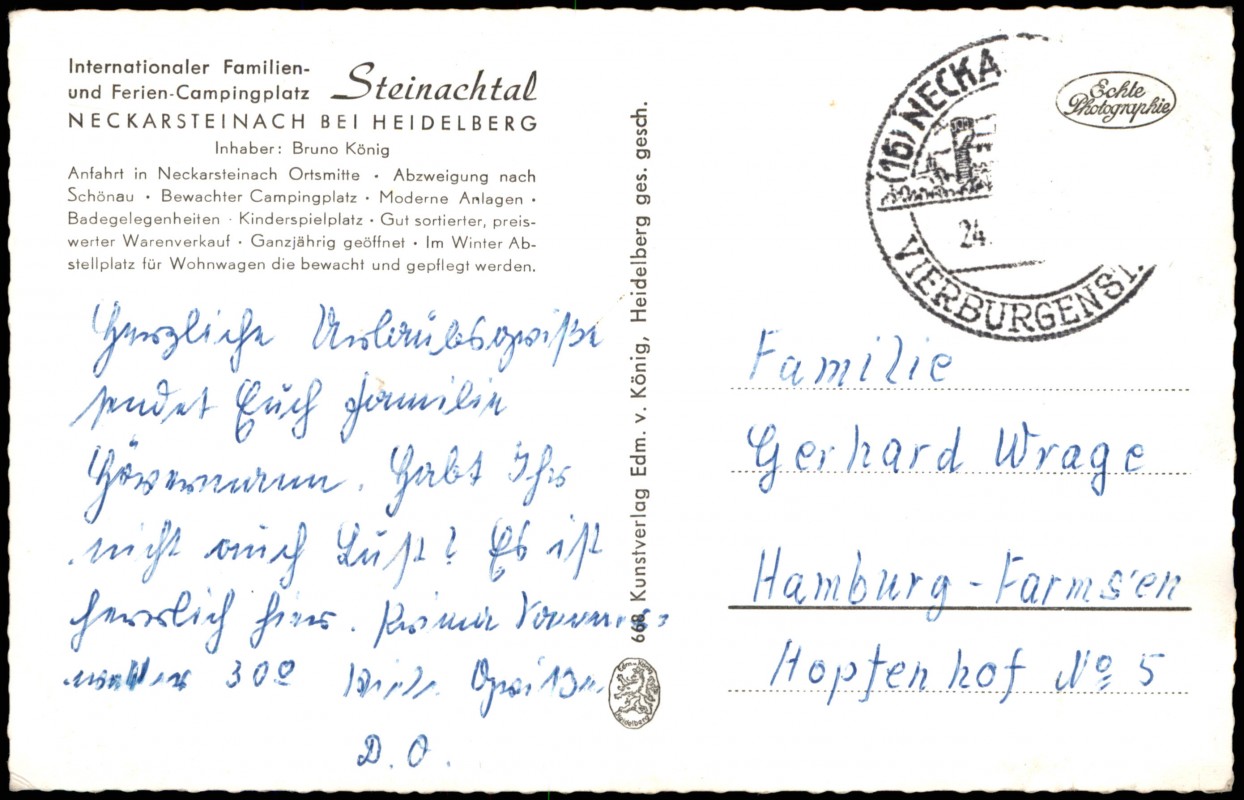 Internationaler Familien-
und Ferien-Campingplatz Steinachtal
NECKARSTEINACH BEI HEIDELBERG
Inhaber: Bruno König
Anfahrt in Neckarsteinach Ortsmitte · Abzweigung nach
Schönau · Bewachter Campingplatz · Moderne Anlagen ·
Badegelegenheiten · Kinderspielplatz · Gut sortierter, preis-
werter Warenverkauf · Ganzjährig geöffnet · Im Winter Ab-
stellplatz für Wohnwagen die bewacht und gepflegt werden.
Herzliche Urlaubsgrüße
sendet Euch Familie
Hövermann. Habt Ihr
nicht auch Lust? Es ist
herrlich hier. Prima Sommer-
wetter 30º Viele Grüße
D. O.
668 Kunstverlag Edm. v. König, Heidelberg ges. gesch.
Edm. v. König
Heidelberg
(16) NECKA
24.
VIERBURGENST
Echte
Photographie
Familie
Gerhard Wrage
Hamburg-Farmsen
Hopfenhof Nº 5